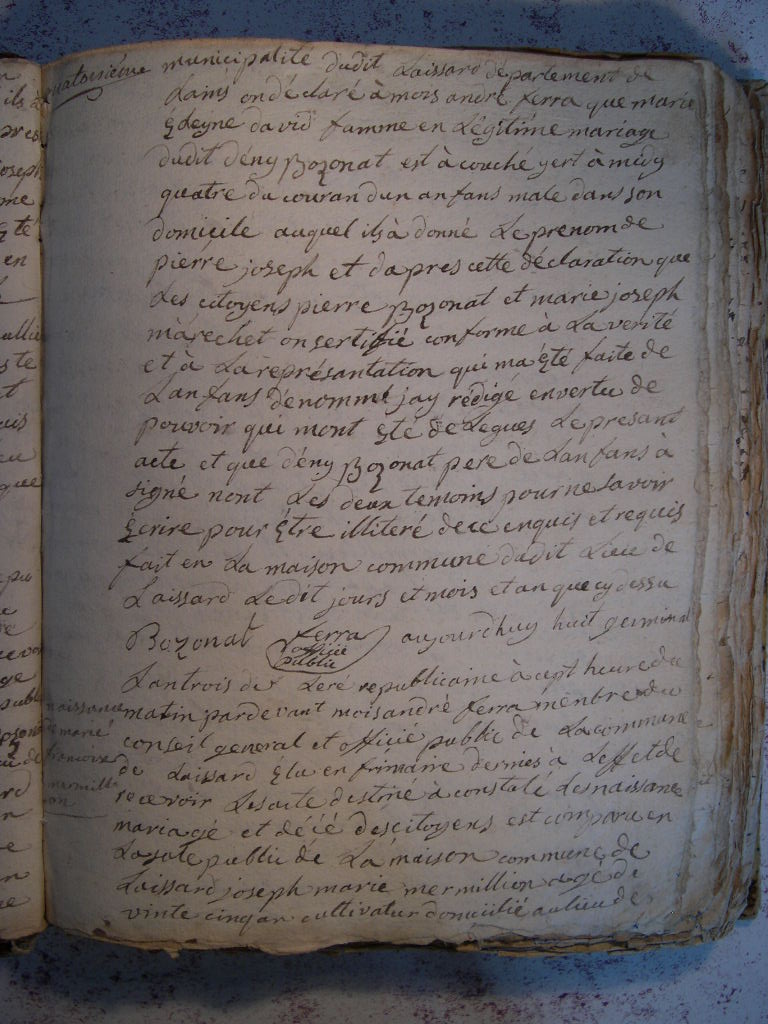 quatorsiéme
municipalité dudit Laissard département de
Lains on déclaré à mois andré ferra que marie
david famme en Légitime mariage
dudit dény Bozonat est à couché yert à midy
quatre du couran dun anfans male dans son
domicile auquel ils à donné Le prenom de
pierre joseph et dapres cette déclaration que
Les citoyens pierre Bozonat et marie joseph
màrechet on sertifié conforme à La verité
et à La représantation qui ma été faite de
Lanfans dénommé jay rédigé en vertu de
pouvoir qui mont été délegues Le présant
acte et que dény Bozonat pere de Lanfans à
signé nont Les deux temoins pour ne savoir
écrire pour être illiteré de ce enquis et requis
fait en La maison commune dudit Lieu de
Laissard Ledit jours et mois et an que cy dessu
Bozonat ferra officié public aujourdhuy huit germinal
Lantrois de Leré republicaine à cept heure du
matin pardevant mois andré ferra menbre du
conseil general et officié public de La commune
de Laissard élu en frimaire dernies à Leffet de
recevoir Les acte destiné à constaté Les naissance
mariagé et décé des citoyens est comparu en
La sale public de La maison commune de
Laissard joseph marie mermillion agé de
vinte cinq an cultivatur domicilié au lieu de
naissance
de marie
francoise
mermilli
on